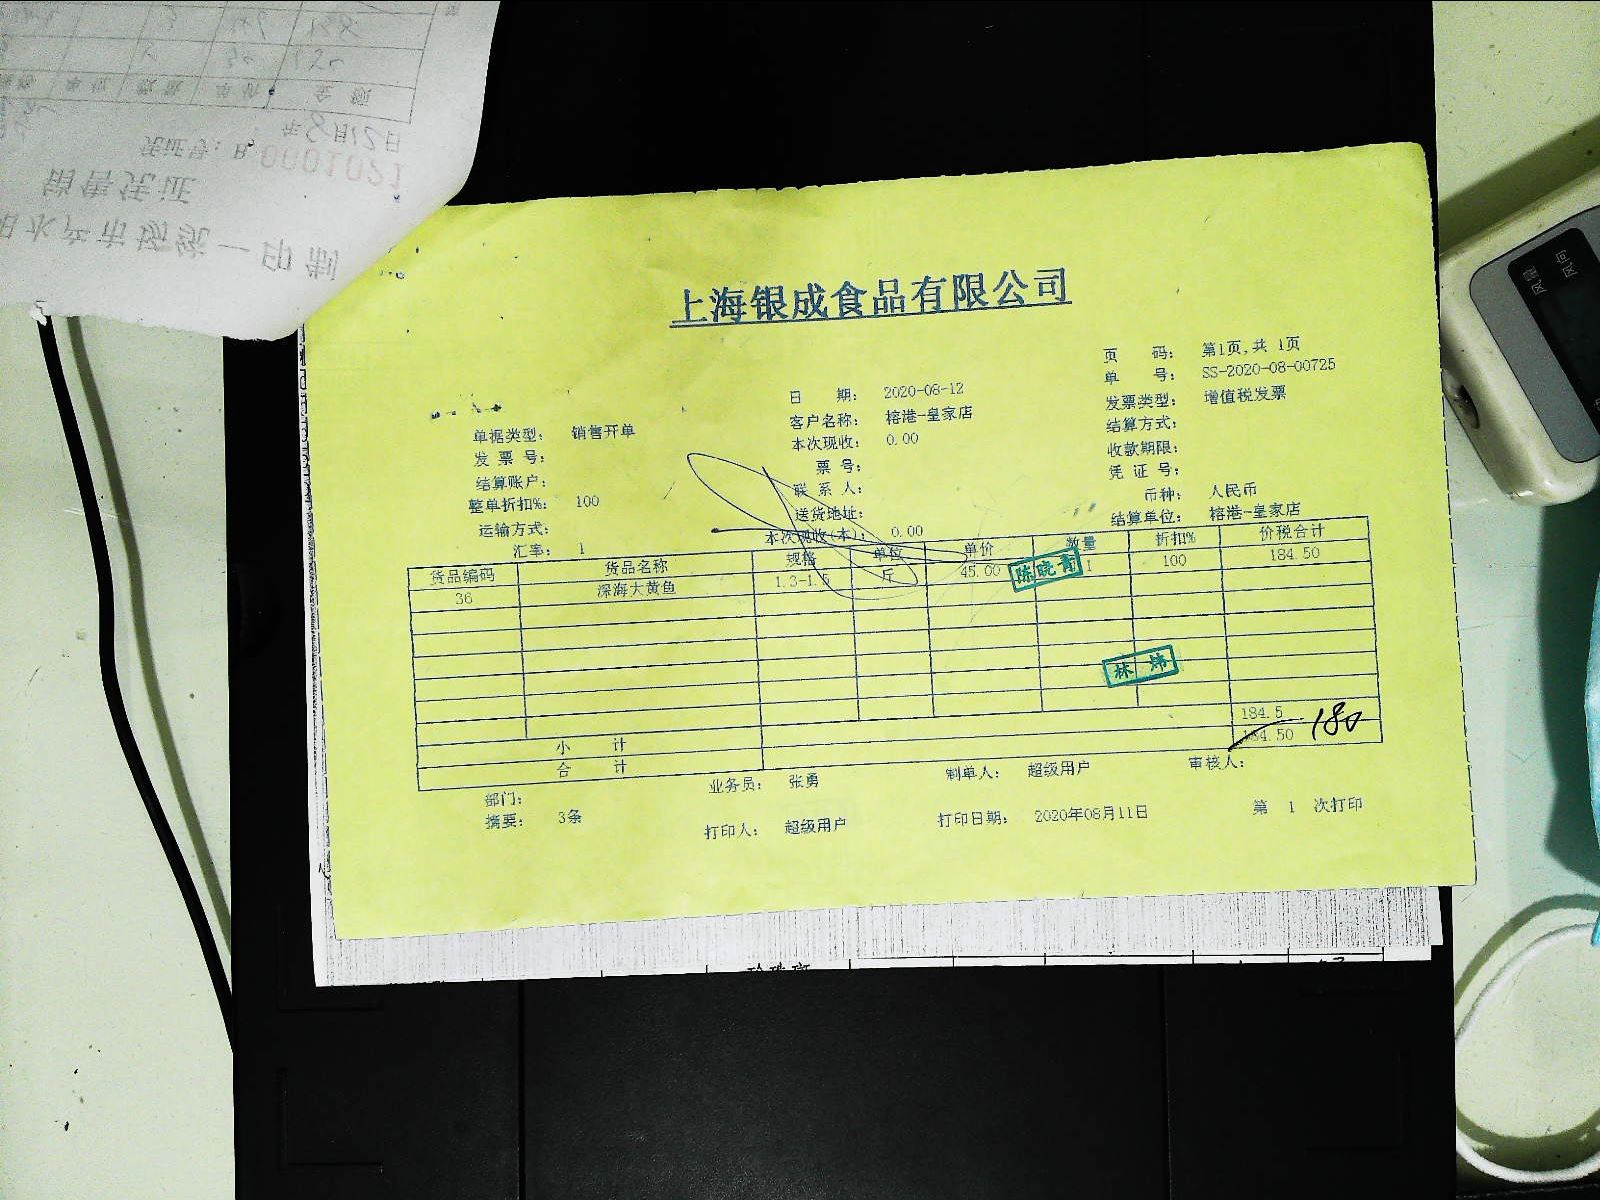 上海银成食品有限公司
页 码： 第1页,共 1页
单 号： SS-2020-08-00725
日 期： 2020-08-12
发票类型： 增值税发票
客户名称： 榕港-皇家店
单据类型： 销售开单
结算方式：
本次现收： 0.00
发 票 号：
收款期限：
票 号：
结算账户：
凭 证 号：
联 系 人：
整单折扣%： 100
币种： 人民币
送货地址：
运输方式：
结算单位： 榕港-皇家店
本次现收(本)： 0.00
汇率： 1
货品编码 货品名称 规格 单位 单价 数量 折扣% 价税合计
36 深海大黄鱼 1.3-1.5 斤 45.00 1 100 184.50
陈晓青
林 炜
小 计 184.5
合 计 184.50 180
部门： 业务员： 张勇 制单人： 超级用户 审核人：
摘要： 3条 打印人： 超级用户 打印日期： 2020年08月11日 第 1 次打印
水产市场统一印制
销售凭证
凭证号： 0001021
年8月12日
单价 金额
风量
风向